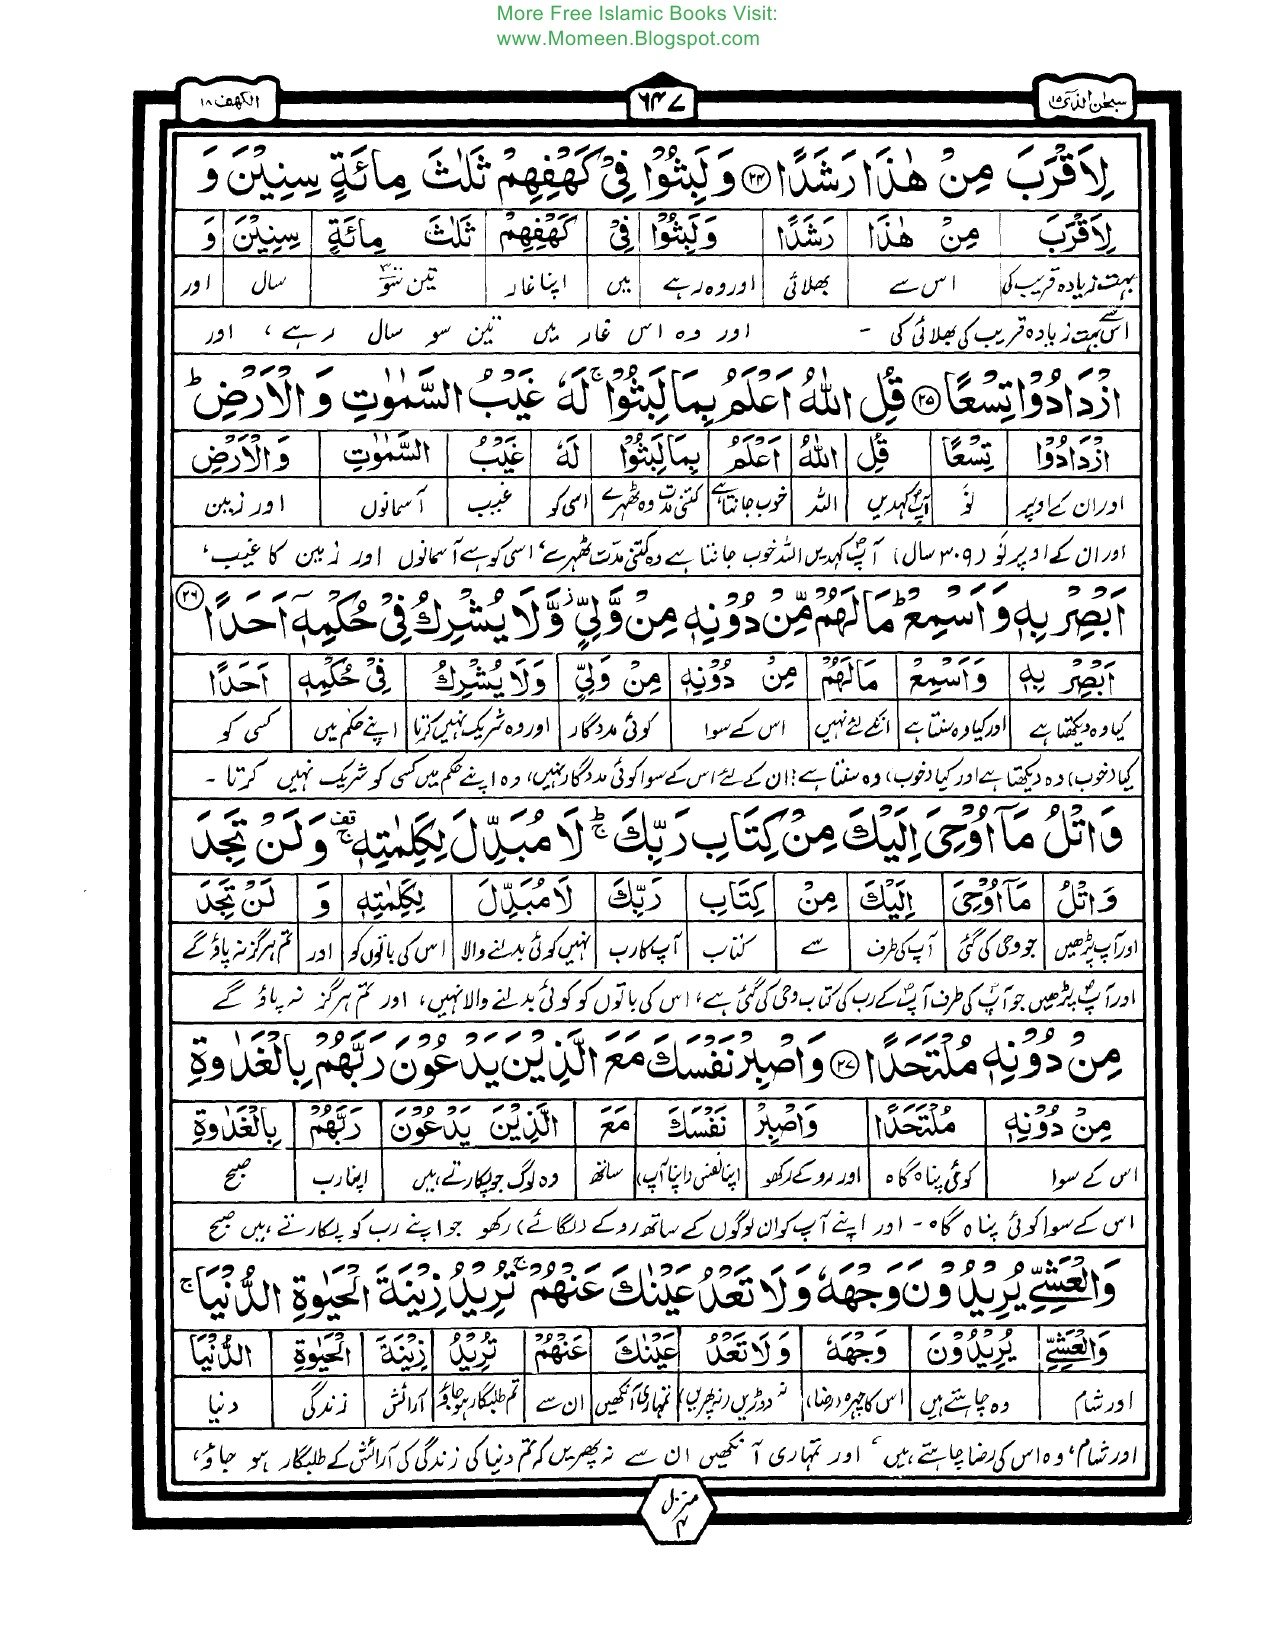 More Free Islamic Books Visit:
www.Momeen.Blogspot.com
سبحٰن الذی ۱۵
۶۴۷
الکهف ۱۸
لِاَقْرَبَ مِنْ هٰذَا رَشَدًا ﴿۲۴﴾ وَلَبِثُوْا فِیْ كَهْفِهِمْ ثَلٰثَ مِائَةٍ سِنِیْنَ وَ
لِاَقْرَبَ مِنْ هٰذَا رَشَدًا وَلَبِثُوْا فِیْ كَهْفِهِمْ ثَلٰثَ مِائَةٍ سِنِیْنَ وَ
بہت زیادہ قریب کی اس سے بھلائی اور وہ رہے میں اپنا غار تین سو ۳۰۰ سال اور
اس سے بہت زیادہ قریب کی بھلائی کی - اور وہ اس غار میں تین سو سال رہے ، اور
ازْدَادُوْا تِسْعًا ﴿۲۵﴾ قُلِ اللّٰهُ اَعْلَمُ بِمَا لَبِثُوْا ۚ لَهٗ غَیْبُ السَّمٰوٰتِ وَالْاَرْضِ ؕ
ازْدَادُوْا تِسْعًا قُلِ اللّٰهُ اَعْلَمُ بِمَا لَبِثُوْا لَهٗ غَیْبُ السَّمٰوٰتِ وَالْاَرْضِ
اور ان کے اوپر نَو آپ کہدیں اللہ خوب جانتا ہے کتنی مدت وہ ٹھہرے اسی کو غیب آسمانوں اور زمین
اور ان کے اوپر نَو (۳۰۹ سال) آپؐ کہدیں اللہ خوب جانتا ہے وہ کتنی مدّت ٹھہرے، اسی کو ہے آسمانوں اور زمین کا غیب،
اَبْصِرْ بِهٖ وَاَسْمِعْ ؕ مَا لَهُمْ مِّنْ دُوْنِهٖ مِنْ وَّلِیٍّ ؗ وَّلَا یُشْرِكُ فِیْ حُكْمِهٖۤ اَحَدًا ﴿۲۶﴾
اَبْصِرْ بِهٖ وَاَسْمِعْ مَا لَهُمْ مِنْ دُوْنِهٖ مِنْ وَلِیٍّ وَلَا یُشْرِكُ فِیْ حُكْمِهٖ اَحَدًا
کیا وہ دیکھتا ہے اور کیا وہ سنتا ہے انکے لئے نہیں اس کے سوا کوئی مددگار اور وہ شریک نہیں کرتا اپنے حکم میں کسی کو
کیا (خوب) وہ دیکھتا ہے اور کیا (خوب) وہ سنتا ہے! ان کے لئے اس کے سوا کوئی مددگار نہیں، وہ اپنے حکم میں کسی کو شریک نہیں کرتا -
وَاتْلُ مَاۤ اُوْحِیَ اِلَیْكَ مِنْ كِتَابِ رَبِّكَ ۚؕ لَا مُبَدِّلَ لِكَلِمٰتِهٖ ۚ۫ وَلَنْ تَجِدَ
وَاتْلُ مَاۤ اُوْحِیَ اِلَیْكَ مِنْ كِتَابِ رَبِّكَ لَا مُبَدِّلَ لِكَلِمٰتِهٖ وَ لَنْ تَجِدَ
اور آپ پڑھیں جو وحی کی گئی آپ کی طرف سے کتاب آپ کا رب نہیں کوئی بدلنے والا اس کی باتوں کو اور تم ہرگز نہ پاؤ گے
اور آپؐ پڑھیں جو آپؐ کی طرف آپؐ کے رب کی کتاب وحی کی گئی ہے، اس کی باتوں کو کوئی بدلنے والا نہیں، اور تم ہرگز نہ پاؤ گے
مِنْ دُوْنِهٖ مُلْتَحَدًا ﴿۲۷﴾ وَاصْبِرْ نَفْسَكَ مَعَ الَّذِیْنَ یَدْعُوْنَ رَبَّهُمْ بِالْغَدٰوةِ
مِنْ دُوْنِهٖ مُلْتَحَدًا وَاصْبِرْ نَفْسَكَ مَعَ الَّذِیْنَ یَدْعُوْنَ رَبَّهُمْ بِالْغَدٰوةِ
اس کے سوا کوئی پناہ گاہ اور روکے رکھو اپنا نفس (اپنا آپ) ساتھ وہ لوگ جو پکارتے ہیں اپنا رب صبح
اس کے سوا کوئی پناہ گاہ - اور اپنے آپ کو ان لوگوں کے ساتھ روکے (لگائے) رکھو جو اپنے رب کو پکارتے ہیں صبح
وَالْعَشِیِّ یُرِیْدُوْنَ وَجْهَهٗ وَلَا تَعْدُ عَیْنٰكَ عَنْهُمْ ۚ تُرِیْدُ زِیْنَةَ الْحَیٰوةِ الدُّنْیَا ۚ
وَالْعَشِیِّ یُرِیْدُوْنَ وَجْهَهٗ وَلَا تَعْدُ عَیْنٰكَ عَنْهُمْ تُرِیْدُ زِیْنَةَ الْحَیٰوةِ الدُّنْیَا
اور شام وہ چاہتے ہیں اس کا چہرہ (رضا) نہ دوڑیں (نہ پھریں) تمہاری آنکھیں ان سے تم طلبگار ہو جاؤ آرائش زندگی دنیا
اور شام، وہ اس کی رضا چاہتے ہیں، اور تمہاری آنکھیں ان سے نہ پھریں کہ تم دنیا کی زندگی کی آرائش کے طلبگار ہو جاؤ،
منزل
۴